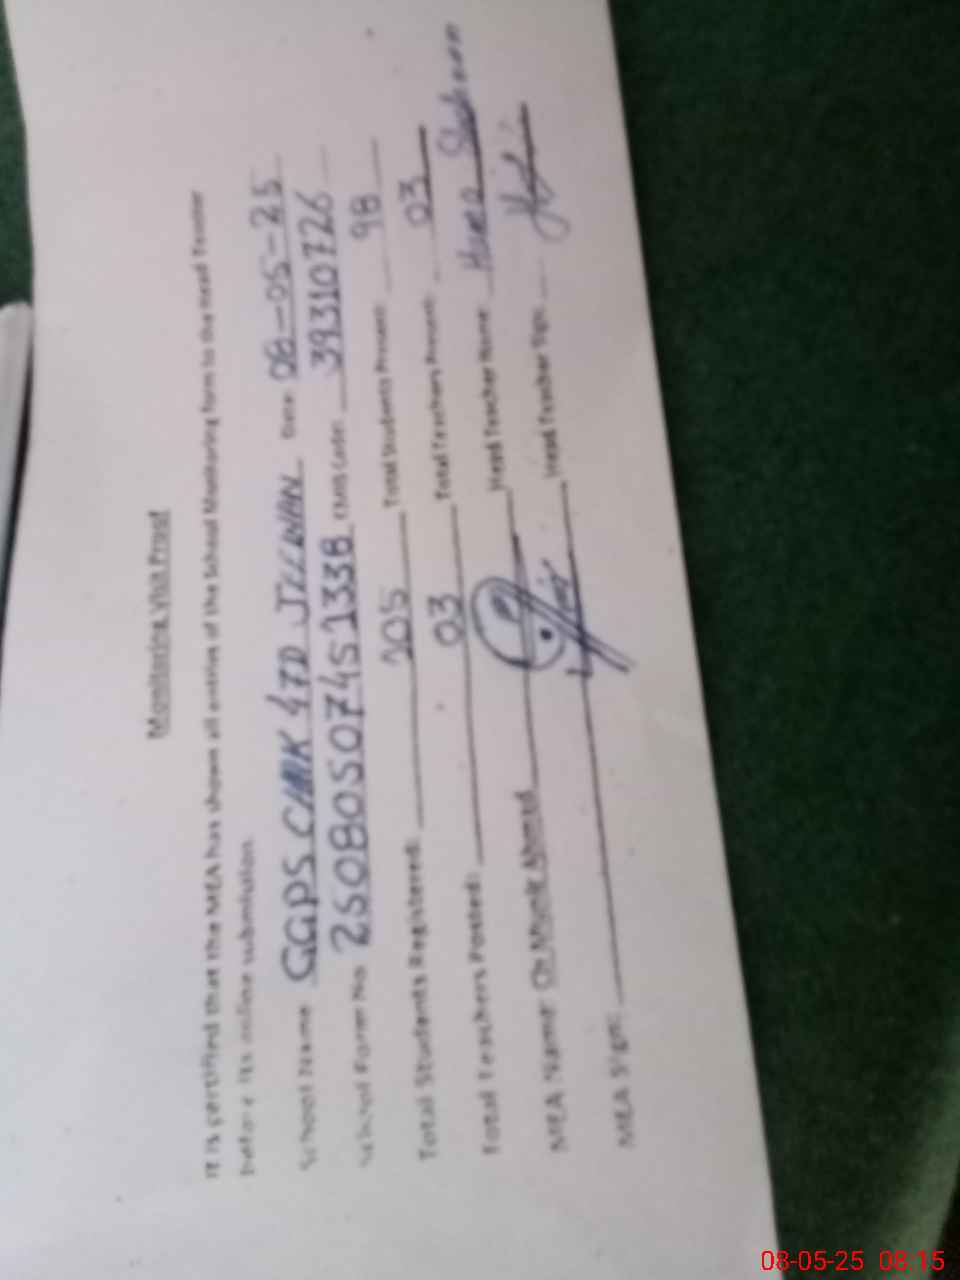 Monitoring Visit Proof
It is certified that the MEA has shown all entries of the School Monitoring form to the Head Teacher
before its online submission.
School Name GGPS CHAK 47D Date: 08-05-25
School Form No 25080507451338 EMIS Code: 39310726
Total Students Registered: 205 Total Students Present: 98
Total Teachers Posted: 03 Total Teachers Present: 03
MEA Name: Ch Ahmed Head Teacher Name: Huma
MEA Sign: Head Teacher Sign:
08-05-25 08:15